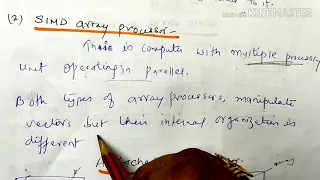 Made with
KINEMASTER
(2) SIMD array processor -
This is computer with multiple processing
unit operating in parallel.
Both types of array processors, manipulate
vectors but their internal organization is
different